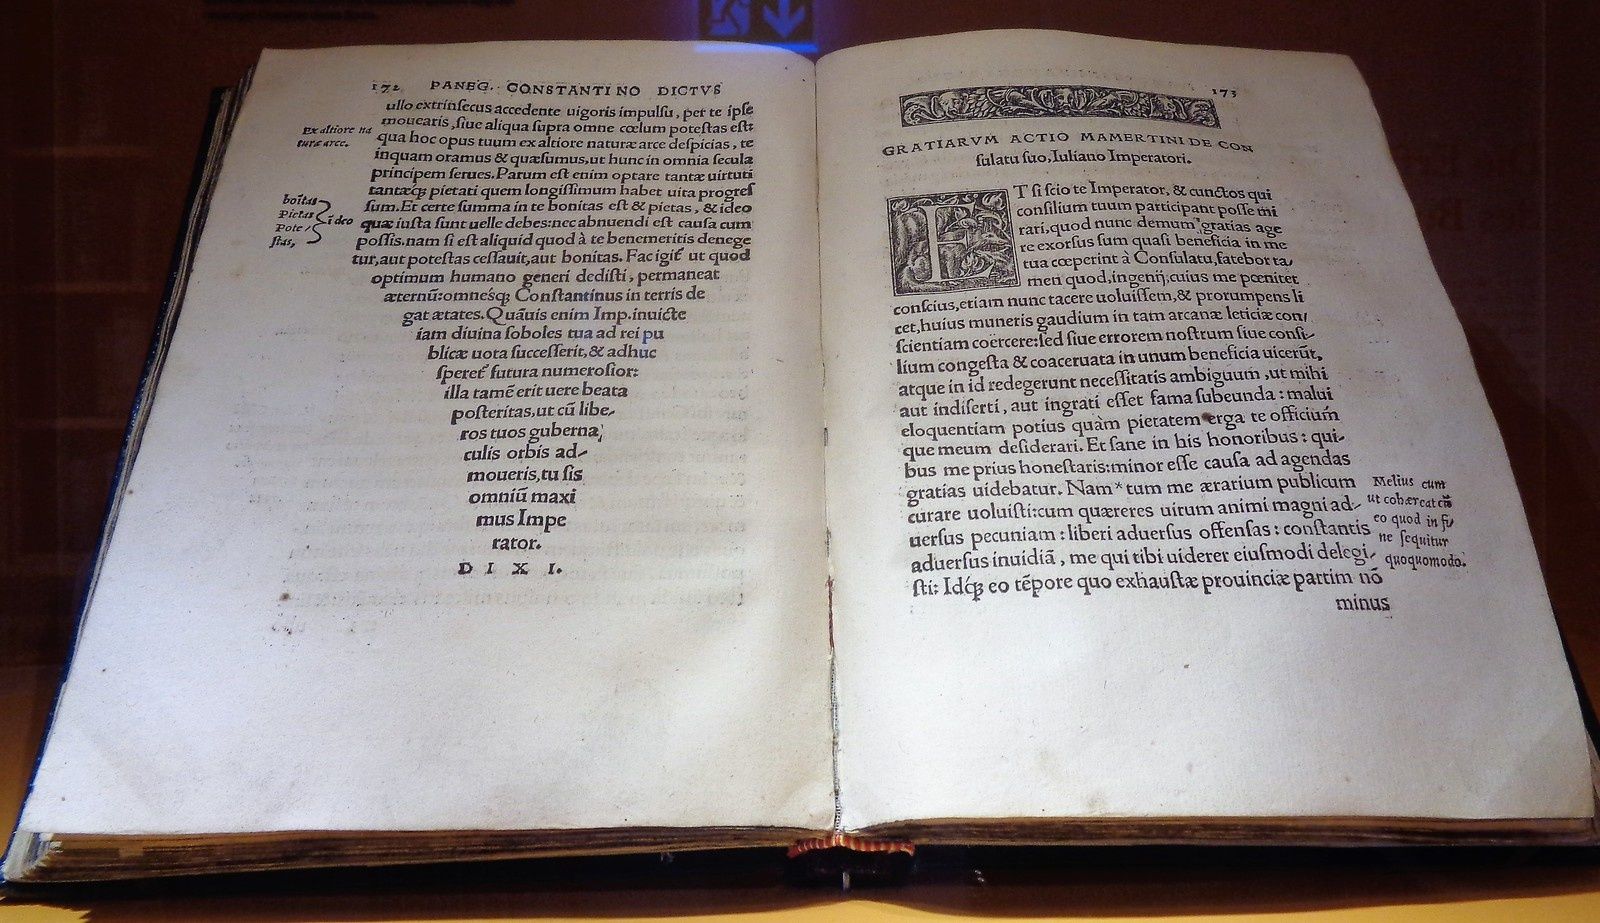 172 PANEG. CONSTANTINO DICTVS
ullo extrinſecus accedente uigoris impulſu, per te ipſe
moueāris, ſiue aliqua ſupra omne cœlum poteſtas eſt:
qua hoc opus tuum ex altiore naturæ arce deſpicias, te
inquam oramus & quæſumus, ut hunc in omnia ſecula
principem ſerues. Parum eſt enim optare tantæ uirtuti
tantæq́; pietati quem longiſſimum habet uita progreſ
ſum. Et certe ſumma in te bonitas eſt & pietas, & ideo
quæ iuſta ſunt uelle debes: nec abnuendi eſt cauſa cum
poſſis. nam ſi eſt aliquid quod à te benemeritis denege
tur, aut poteſtas ceſſauit, aut bonitas. Fac igit̃ ut quod
optimum humano generi dediſti, permaneat
æternũ: omnesq́; Conſtantinus in terris de
gat ætates. Quãuis enim Imp. inuicte
iam diuina ſoboles tua ad rei pu
blicæ uota ſucceſſerit, & adhuc
ſperet̃ futura numeroſior:
illa tamẽ erit uere beata
poſteritas, ut cũ libe-
ros tuos guberna,
culis orbis ad-
moueris, tu ſis
omniũ maxi
mus Impe
rator.
D I X I.
Ex altiore na
turæ arce.
boĩtas
Pietas ĩdeo
Pote-
ſtas,
173
GRATIARVM ACTIO MAMERTINI DE CON
ſulatu ſuo, Iuliano Imperatori.
ET ſi ſcio te Imperator, & cunctos qui
conſilium tuum participant poſſe mi
rari, quod nunc demum gratias age
re exorſus ſum quaſi beneficia in me
tua cœperint à Conſulatu, fatebor ta-
men quod, ingenij, cuius me pœnitet
conſcius, etiam nunc tacere uoluiſſem, & prorumpens li
cet, huius muneris gaudium in tam arcanæ leticiæ con-
ſcientiam coërcere: ſed ſiue errorem noſtrum ſiue conſi-
lium congeſta & coaceruata in unum beneficia uicerũt,
atque in id redegerunt neceſſitatis ambiguum, ut mihi
aut indiſerti, aut ingrati eſſet fama ſubeunda: malui
eloquentiam potius quàm pietatem erga te officium
que meum deſiderari. Et ſane in his honoribus: qui-
bus me prius honeſtaris: minor eſſe cauſa ad agendas
gratias uidebatur. Nam * tum me ærarium publicum
curare uoluiſti: cum quæreres uirum animi magni ad-
uerſus pecuniam: liberi aduerſus offenſas: conſtantis
aduerſus inuidiã, me qui tibi uiderer eiuſmodi delegi-
ſti: Idq́; eo tẽpore quo exhauſtæ prouinciæ partim nõ
minus
Melius cum
ut cohærcat cũ
eo quod in fi-
ne ſequitur
quoquomodo.